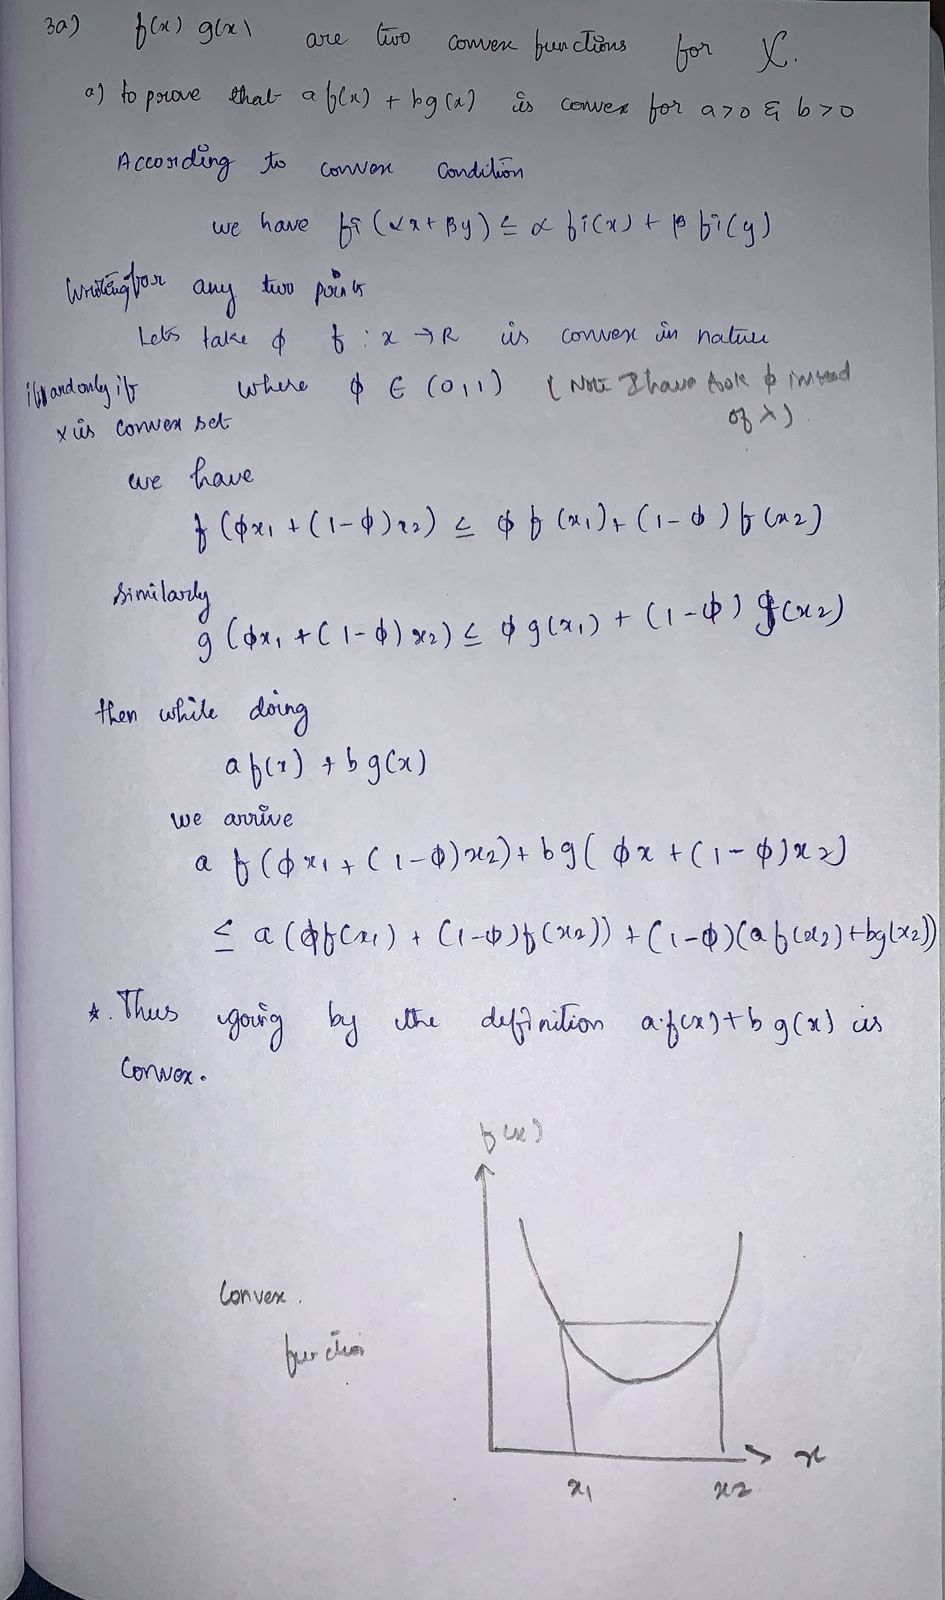 3a) f(x) g(x) are two convex functions for X.
a) to prove that a f(x) + bg(x) is convex for a>0 & b>0
According to convex condition
we have fi (αx + βy) ≤ α fi(x) + β fi(y)
Writing for any two points
Lets take ϕ f : x → R is convex in nature
if and only if where ϕ ∈ (0,1) (Note I have took ϕ instead
x is convex set of λ)
we have
f (ϕx1 + (1-ϕ)x2) ≤ ϕ f (x1) + (1-ϕ) f (x2)
Similarly
g (ϕx1 + (1-ϕ) x2) ≤ ϕ g(x1) + (1-ϕ) g(x2)
then while doing
a f(x) + b g(x)
we arrive
a f (ϕ x1 + (1-ϕ)x2) + bg( ϕx + (1-ϕ)x2)
≤ a (ϕf(x1) + (1-ϕ)f(x2)) + (1-ϕ)(a f(x2)+bg(x2))
* . Thus going by the definition a.f(x)+b g(x) is
convex.
f(x)
Convex.
function
x
x1 x2